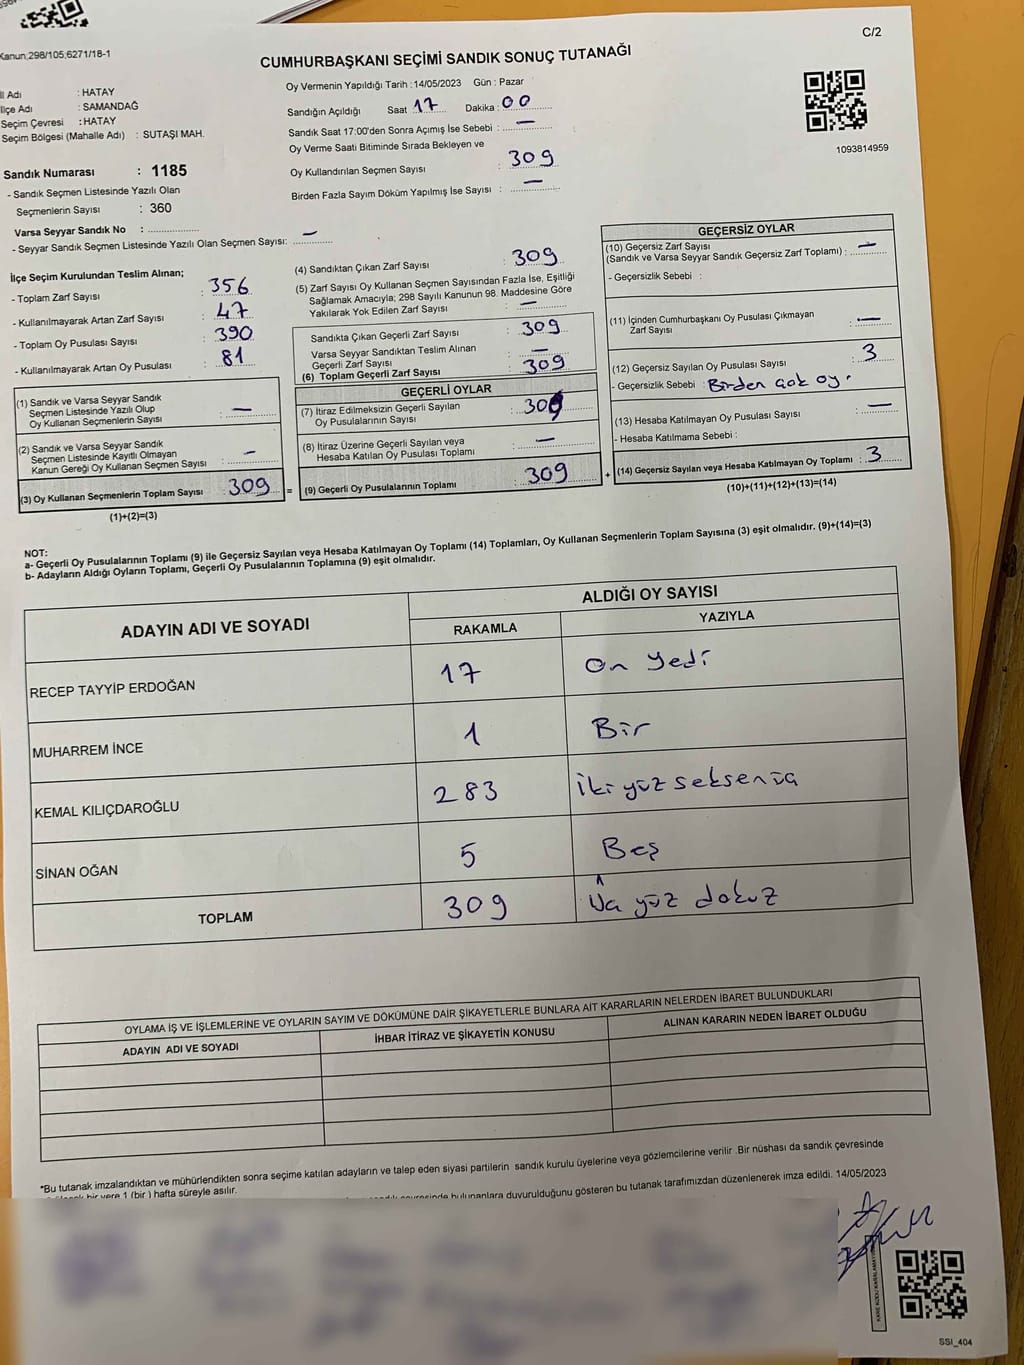 Kanun;298/105;6271/18-1
C/2
CUMHURBAŞKANI SEÇİMİ SANDIK SONUÇ TUTANAĞI
İl Adı : HATAY
İlçe Adı : SAMANDAĞ
Seçim Çevresi : HATAY
Seçim Bölgesi (Mahalle Adı) : SUTAŞI MAH.
Sandık Numarası : 1185
- Sandık Seçmen Listesinde Yazılı Olan
Seçmenlerin Sayısı : 360
Varsa Seyyar Sandık No :
- Seyyar Sandık Seçmen Listesinde Yazılı Olan Seçmen Sayısı: —
Oy Vermenin Yapıldığı Tarih :14/05/2023 Gün : Pazar
Sandığın Açıldığı Saat 17 Dakika : 00
Sandık Saat 17:00'den Sonra Açımış İse Sebebi : —
Oy Verme Saati Bitiminde Sırada Bekleyen ve
Oy Kullandırılan Seçmen Sayısı : 309
Birden Fazla Sayım Döküm Yapılmış İse Sayısı : —
1093814959
İlçe Seçim Kurulundan Teslim Alınan;
- Toplam Zarf Sayısı : 356
- Kullanılmayarak Artan Zarf Sayısı : 47
- Toplam Oy Pusulası Sayısı : 390
- Kullanılmayarak Artan Oy Pusulası : 81
(1) Sandık ve Varsa Seyyar Sandık
Seçmen Listesinde Yazılı Olup
Oy Kullanan Seçmenlerin Sayısı : —
(2) Sandık ve Varsa Seyyar Sandık
Seçmen Listesinde Kayıtlı Olmayan
Kanun Gereği Oy Kullanan Seçmen Sayısı : —
(3) Oy Kullanan Seçmenlerin Toplam Sayısı : 309 =
(1)+(2)=(3)
(4) Sandıktan Çıkan Zarf Sayısı : 309
(5) Zarf Sayısı Oy Kullanan Seçmen Sayısından Fazla İse, Eşitliği
Sağlamak Amacıyla; 298 Sayılı Kanunun 98. Maddesine Göre
Yakılarak Yok Edilen Zarf Sayısı : —
Sandıkta Çıkan Geçerli Zarf Sayısı : 309
Varsa Seyyar Sandıktan Teslim Alınan
Geçerli Zarf Sayısı : —
(6) Toplam Geçerli Zarf Sayısı : 309
GEÇERLİ OYLAR
(7) İtiraz Edilmeksizin Geçerli Sayılan
Oy Pusulalarının Sayısı : 309
(8) İtiraz Üzerine Geçerli Sayılan veya
Hesaba Katılan Oy Pusulası Toplamı : —
(9) Geçerli Oy Pusulalarının Toplamı : 309 +
GEÇERSİZ OYLAR
(10) Geçersiz Zarf Sayısı
(Sandık ve Varsa Seyyar Sandık Geçersiz Zarf Toplamı) : —
- Geçersizlik Sebebi :
(11) İçinden Cumhurbaşkanı Oy Pusulası Çıkmayan
Zarf Sayısı : —
(12) Geçersiz Sayılan Oy Pusulası Sayısı : 3
- Geçersizlik Sebebi : Birden çok oy.
(13) Hesaba Katılmayan Oy Pusulası Sayısı : —
- Hesaba Katılmama Sebebi :
(14) Geçersiz Sayılan veya Hesaba Katılmayan Oy Toplamı : 3
(10)+(11)+(12)+(13)=(14)
NOT:
a- Geçerli Oy Pusulalarının Toplamı (9) ile Geçersiz Sayılan veya Hesaba Katılmayan Oy Toplamı (14) Toplamları, Oy Kullanan Seçmenlerin Toplam Sayısına (3) eşit olmalıdır. (9)+(14)=(3)
b- Adayların Aldığı Oyların Toplamı, Geçerli Oy Pusulalarının Toplamına (9) eşit olmalıdır.
ADAYIN ADI VE SOYADI
ALDIĞI OY SAYISI
RAKAMLA YAZIYLA
RECEP TAYYİP ERDOĞAN 17 On yedi
MUHARREM İNCE 1 Bir
KEMAL KILIÇDAROĞLU 283 iki yüz seksen üç
SİNAN OĞAN 5 Beş
TOPLAM 309 Üç yüz dokuz
OYLAMA İŞ VE İŞLEMLERİNE VE OYLARIN SAYIM VE DÖKÜMÜNE DAİR ŞİKAYETLERLE BUNLARA AİT KARARLARIN NELERDEN İBARET BULUNDUKLARI
ADAYIN ADI VE SOYADI İHBAR İTİRAZ VE ŞİKAYETİN KONUSU ALINAN KARARIN NEDEN İBARET OLDUĞU
*Bu tutanak imzalandıktan ve mühürlendikten sonra seçime katılan adayların ve talep eden siyasi partilerin sandık kurulu üyelerine veya gözlemcilerine verilir .Bir nüshası da sandık çevresinde
bir yere 1 (bir ) hafta süreyle asılır.
bulunanlara duyurulduğunu gösteren bu tutanak tarafımızdan düzenlenerek imza edildi. 14/05/2023
KARE KODU KARALAMAYINIZ
SSI_404